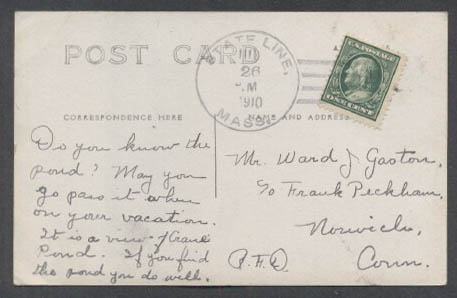 POST CARD
STATE LINE,
26
M
1910
MASS.
U.S. POSTAGE
ONE CENT
CORRESPONDENCE HERE
NAME AND ADDRESS
Do you know the
pond? May you
go pass it when
on your vacation.
It is a view of
Pond. If you find
the pond you do well.
Mr. Ward J. Gaston,
c/o Frank Peckham,
Norwich,
R.F.D. Conn.